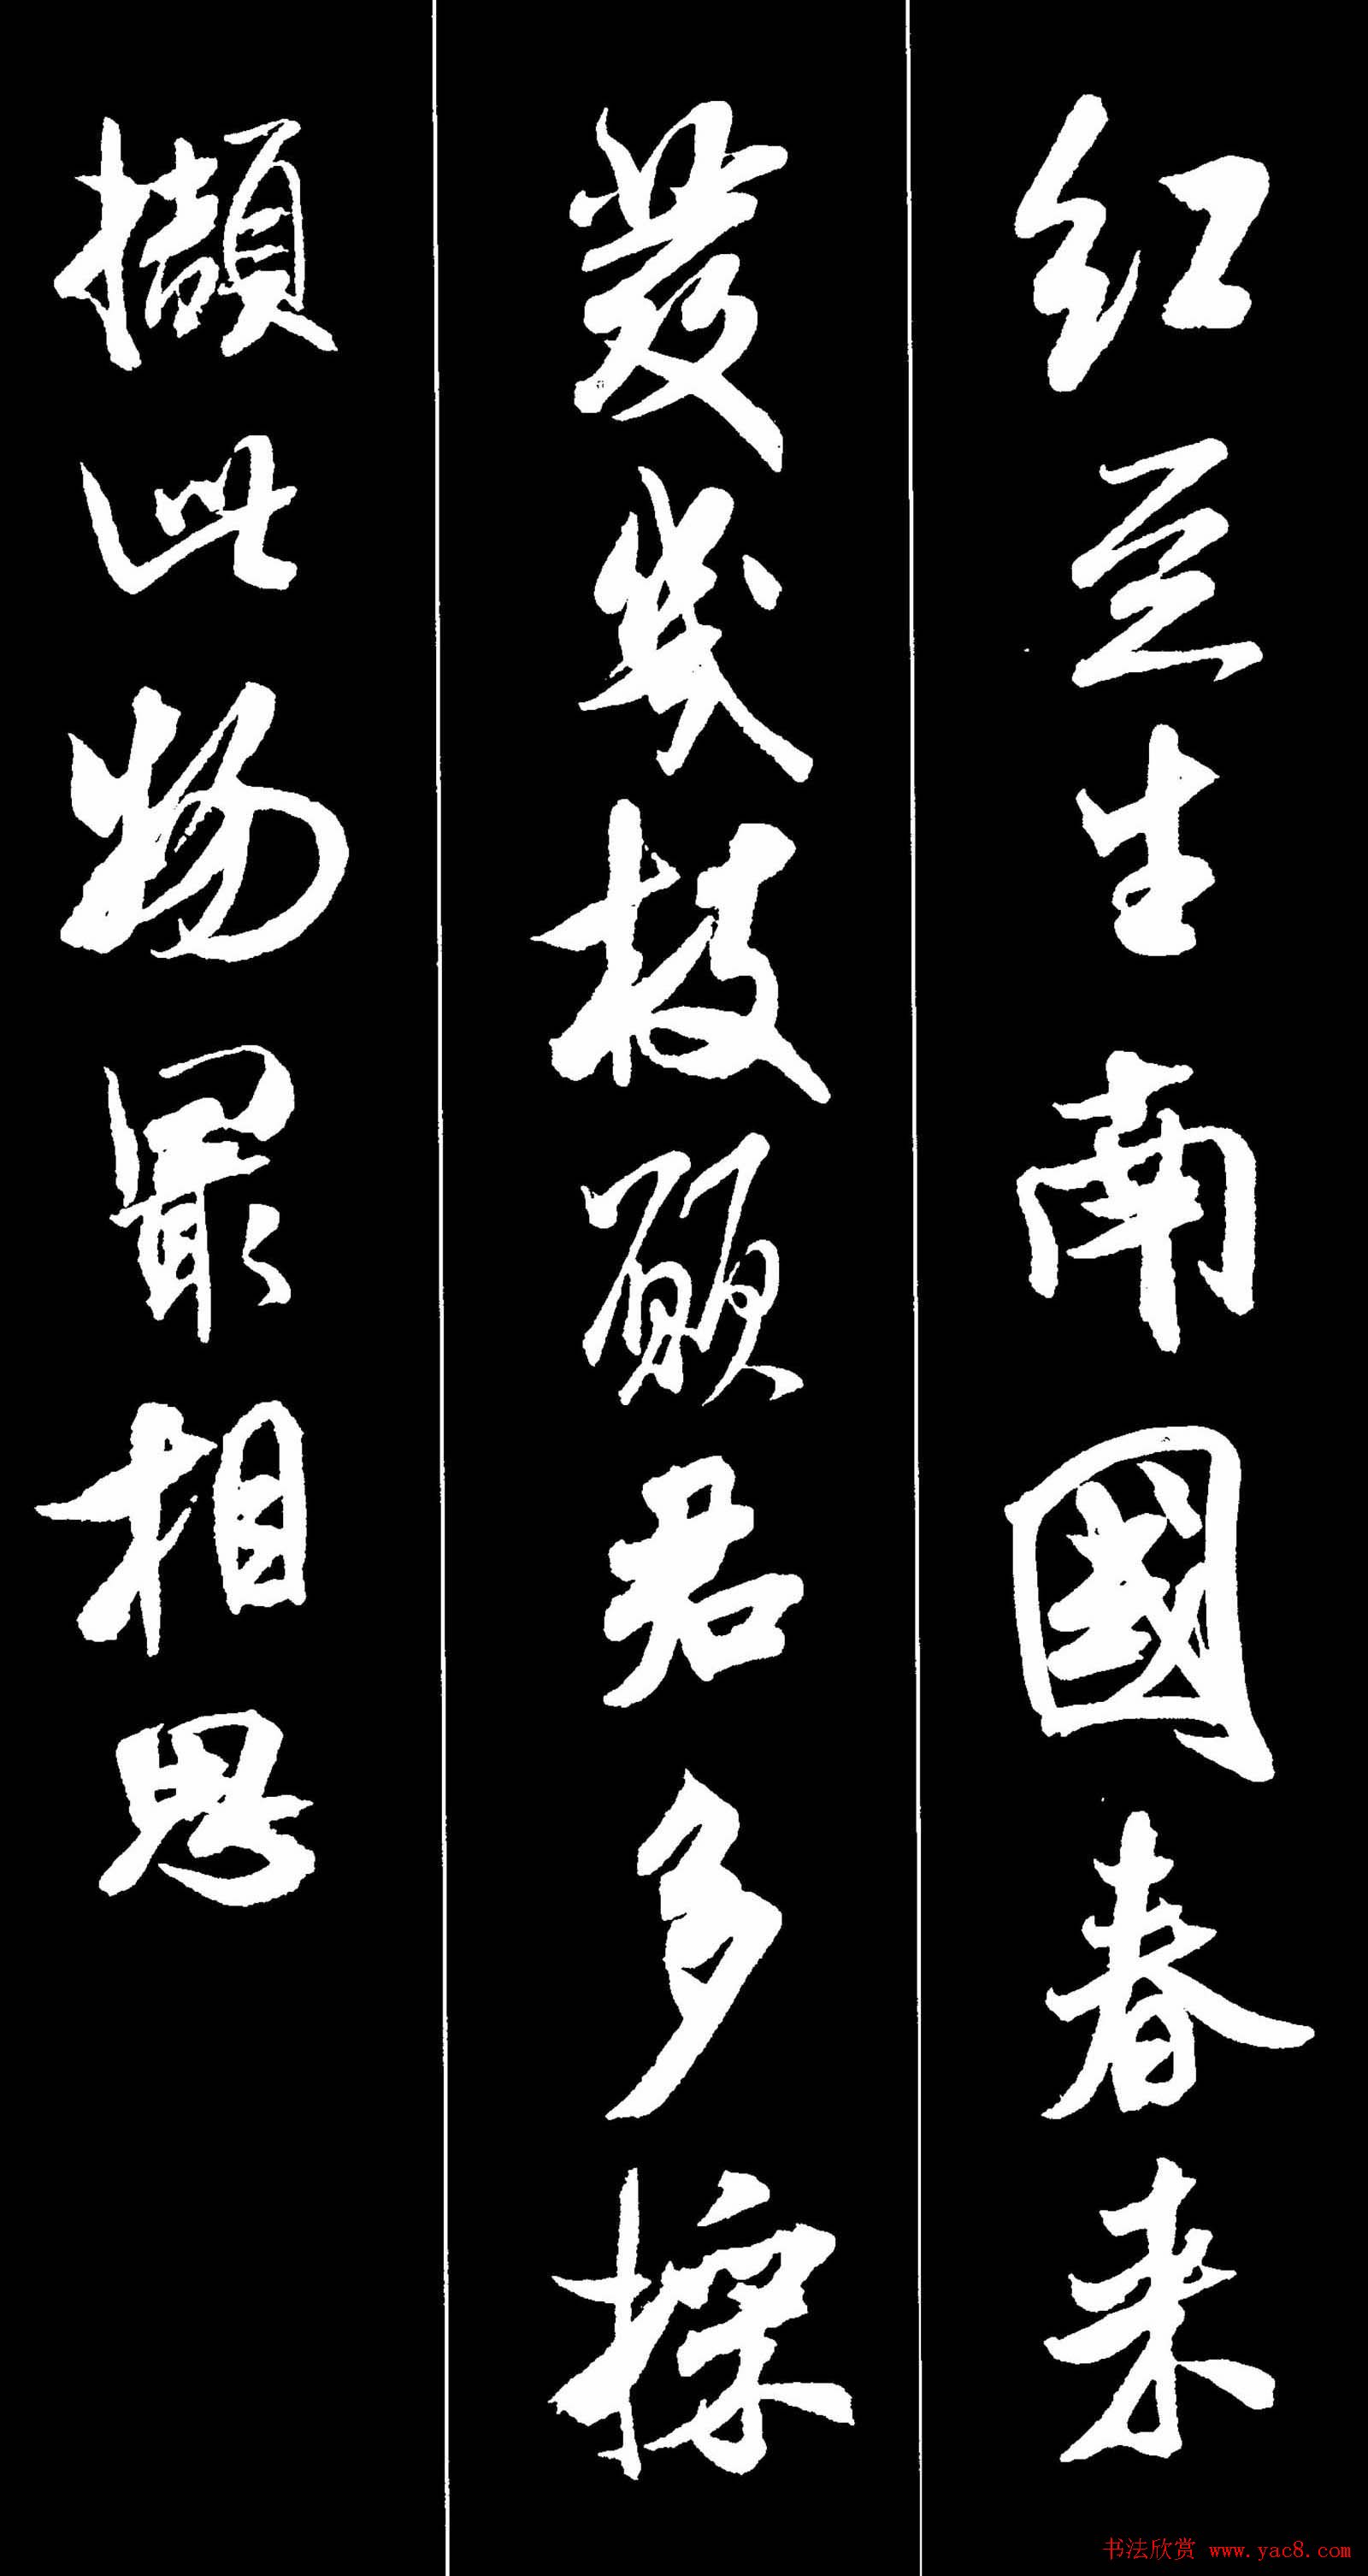 红豆生南國春来
發幾枝願君多採
擷此物最相思
书法欣赏 www.yac8.com